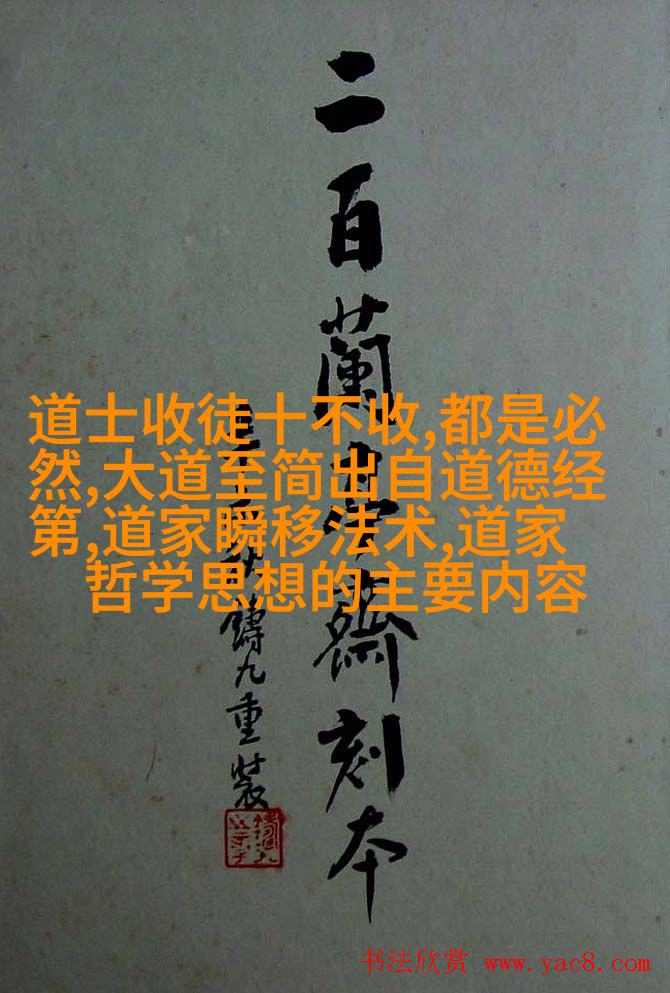 二百蘭亭齋刻本
鑄九重裝
道士收徒十不收,都是必
然,大道至简出自道德经
第,道家瞬移法术,道家
哲学思想的主要内容
书法欣赏 www.yac8.com